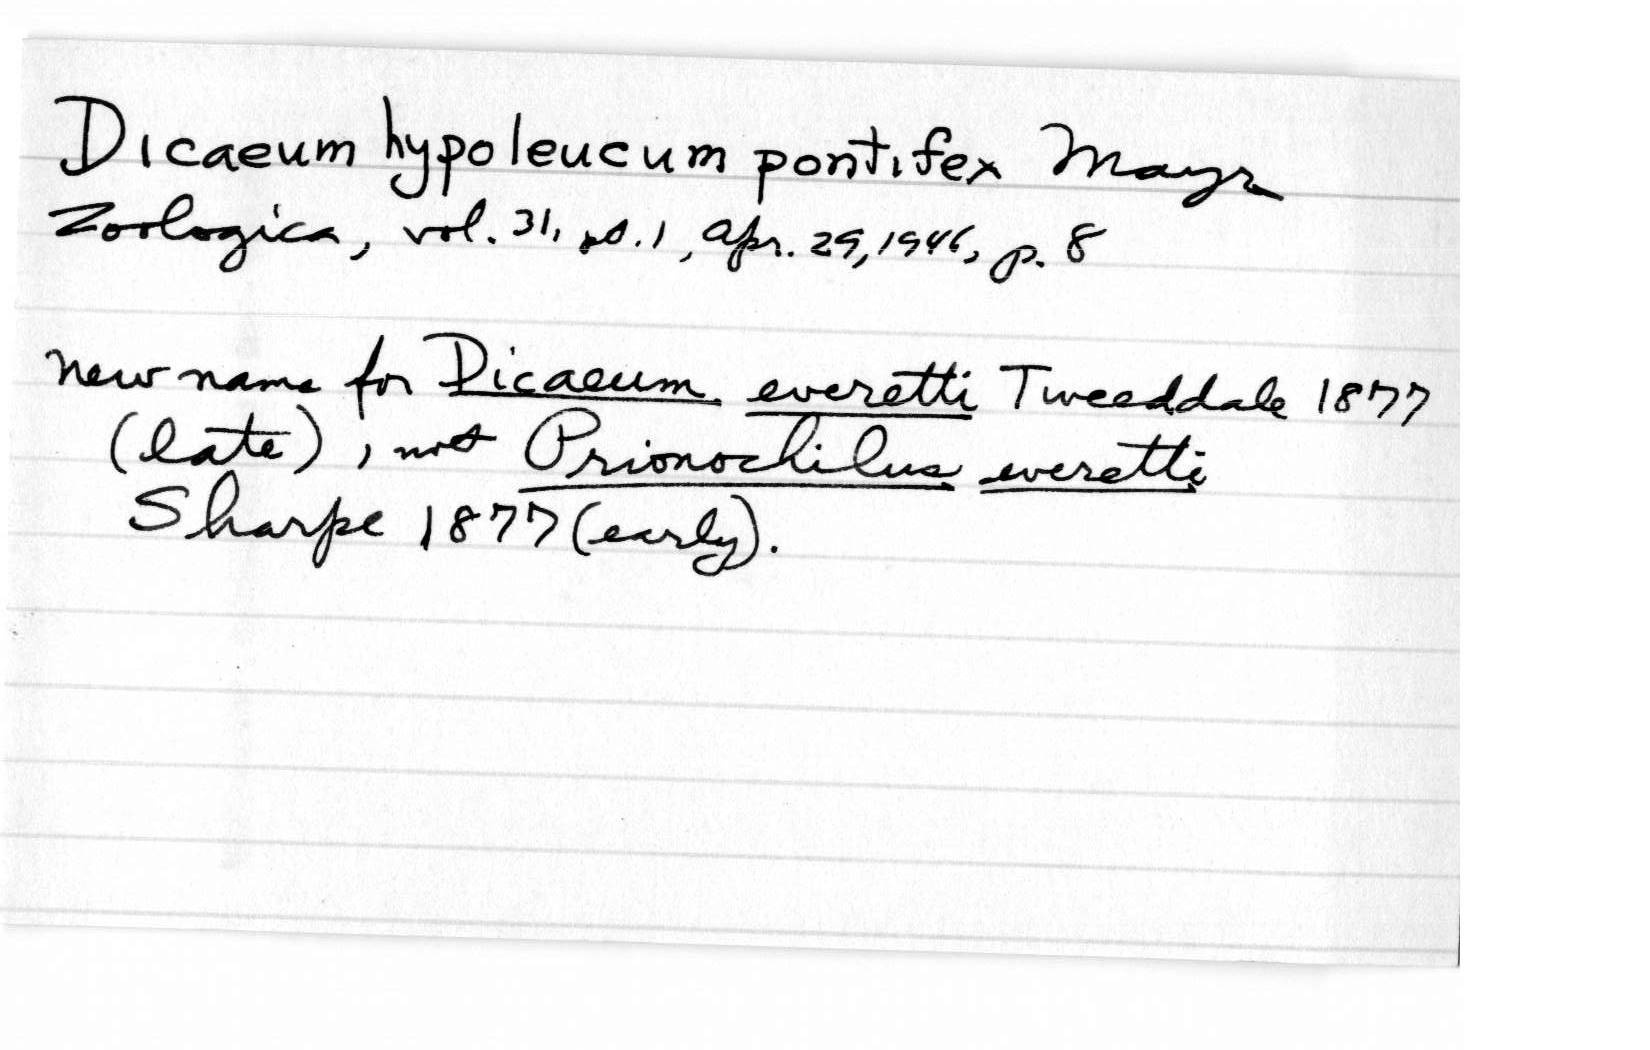 Dicaeum hypoleucum pontifex Mayr
Zoologica, vol. 31, no. 1, Apr. 29, 1946, p. 8
new name for Dicaeum everetti Tweeddale 1877
(late), not Prionochilus everetti
Sharpe 1877 (early).